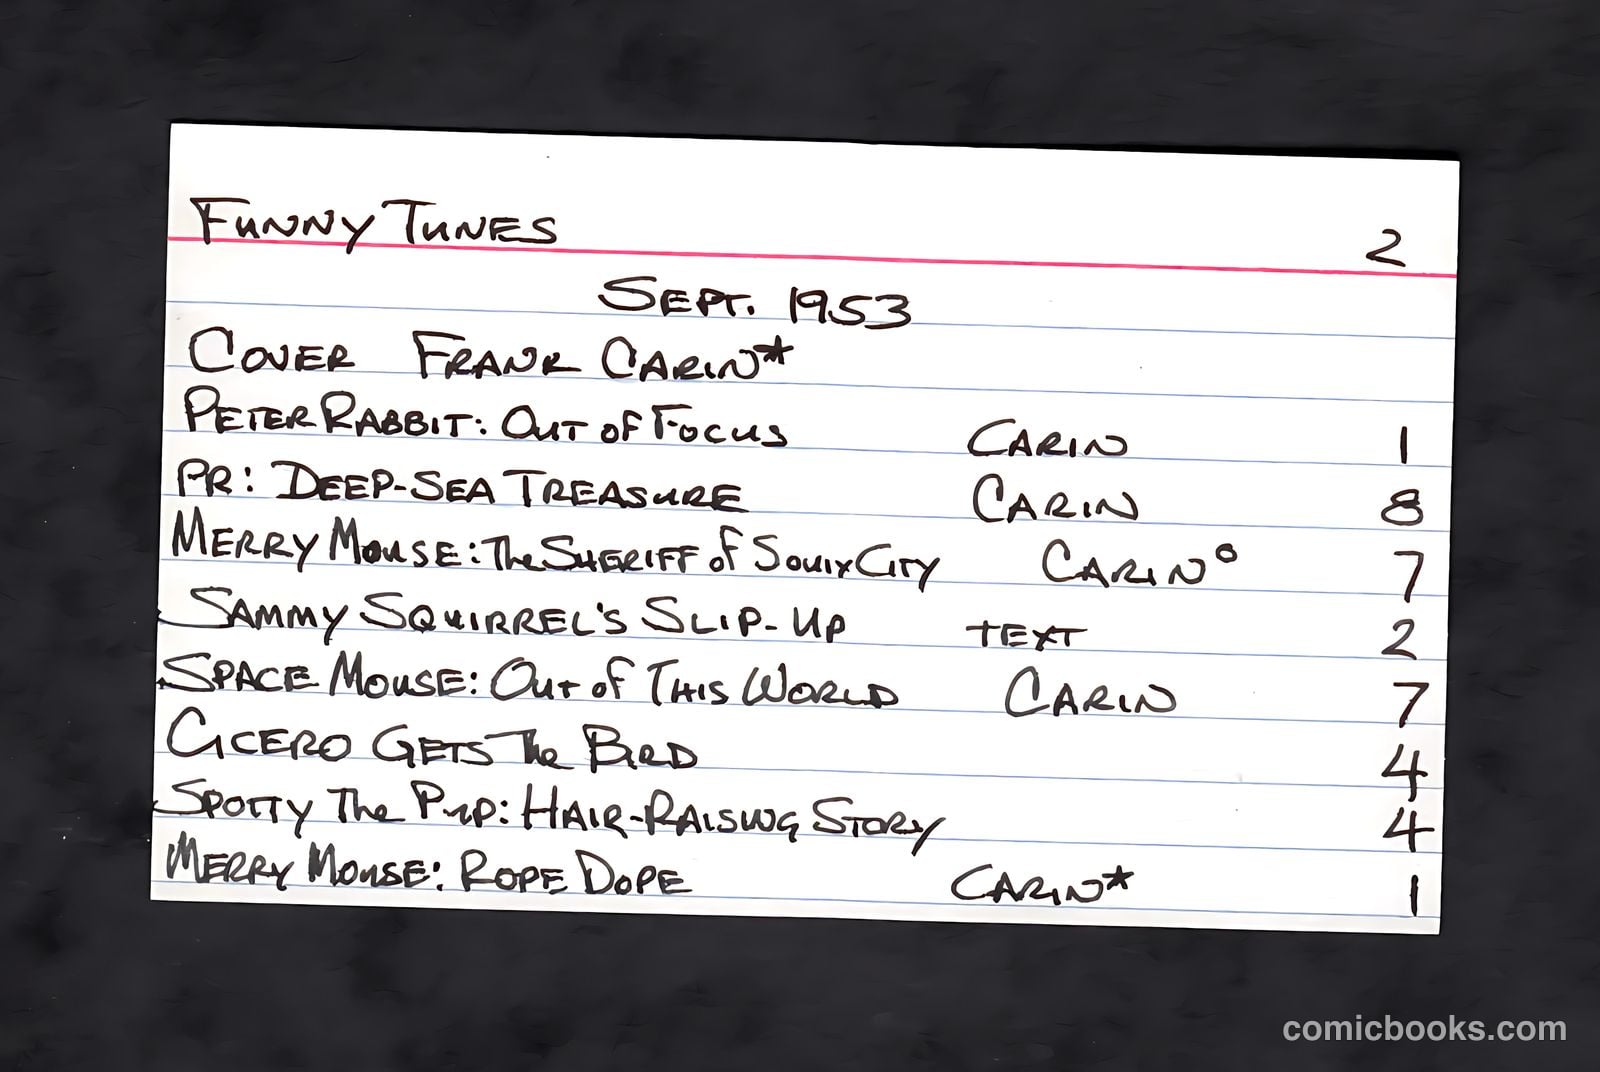 Funny Tunes 2
Sept. 1953
Cover Frank Carin*
Peter Rabbit: Out of Focus Carin 1
PR: Deep-Sea Treasure Carin 8
Merry Mouse: The Sheriff of Souix City Carin° 7
Sammy Squirrel's Slip-Up text 2
Space Mouse: Out of This World Carin 7
Cicero Gets The Bird 4
Spotty The Pup: Hair-Raising Story 4
Merry Mouse: Rope Dope Carin* 1
comicbooks.com